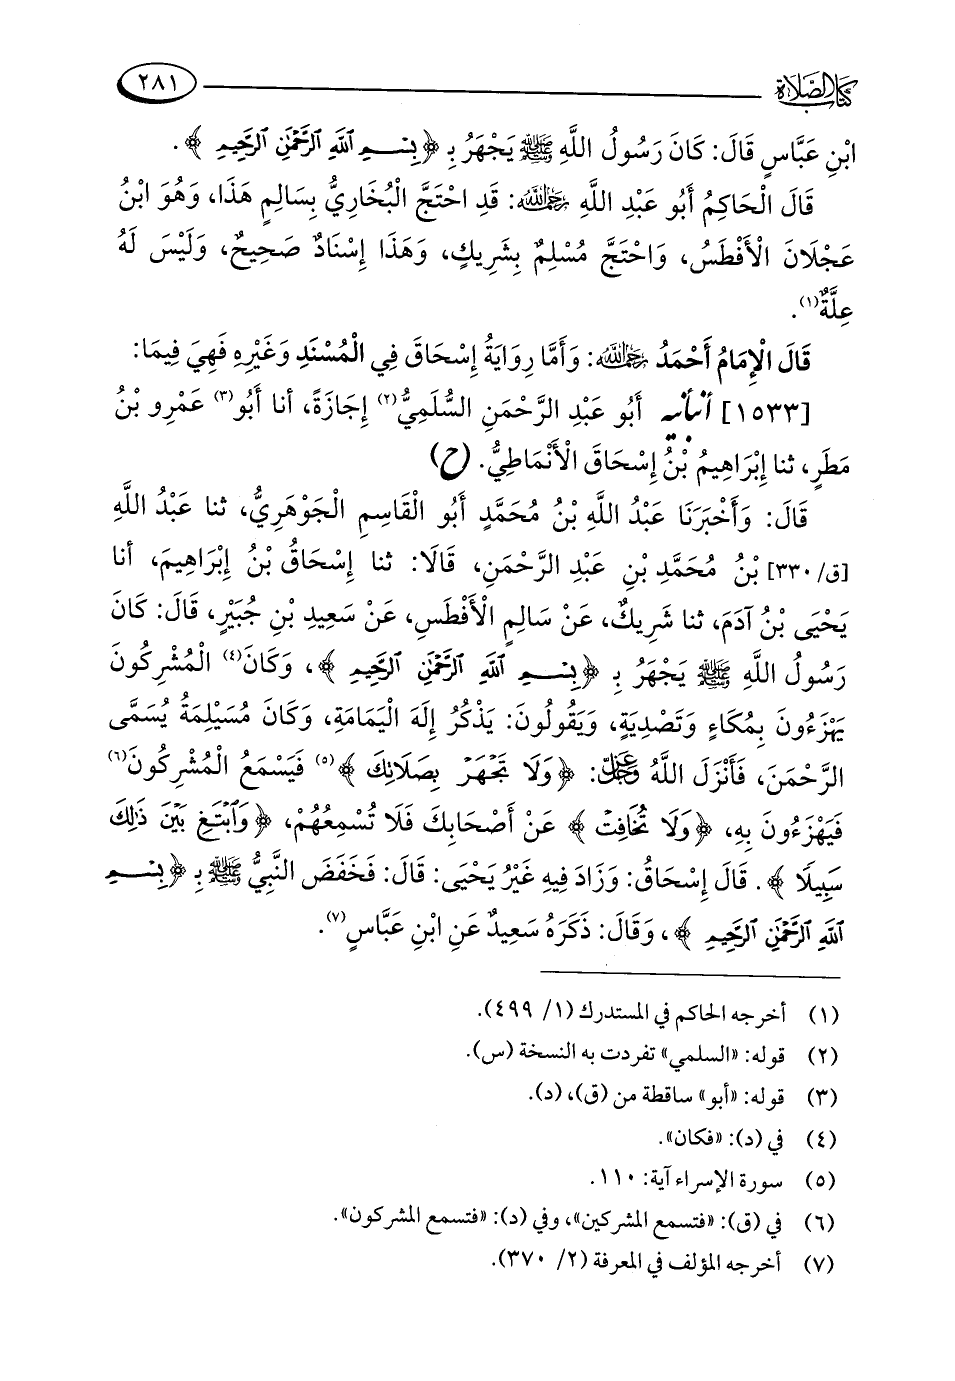 كتاب الصلاة ٢٨١
ابْنِ عَبَّاسٍ قَالَ: كَانَ رَسُولُ اللَّهِ ﷺ يَجْهَرُ بِـ ﴿بِسْمِ ٱللَّهِ ٱلرَّحْمَٰنِ ٱلرَّحِيمِ﴾.
قَالَ الْحَاكِمُ أَبُو عَبْدِ اللَّهِ رَحِمَهُ اللَّهُ: قَدِ احْتَجَّ الْبُخَارِيُّ بِسَالِمٍ هَذَا، وَهُوَ ابْنُ
عَجْلَانَ الْأَفْطَسُ، وَاحْتَجَّ مُسْلِمٌ بِشَرِيكٍ، وَهَذَا إِسْنَادٌ صَحِيحٌ، وَلَيْسَ لَهُ
عِلَّةٌ(١).
قَالَ الْإِمَامُ أَحْمَدُ رَحِمَهُ اللَّهُ: وَأَمَّا رِوَايَةُ إِسْحَاقَ فِي الْمُسْنَدِ وَغَيْرِهِ فَهِيَ فِيمَا:
[١٥٣٣] أنبأنيه أَبُو عَبْدِ الرَّحْمَنِ السُّلَمِيُّ(٢) إِجَازَةً، أنا أَبُو(٣) عَمْرِو بْنُ
مَطَرٍ، ثنا إِبْرَاهِيمُ بْنُ إِسْحَاقَ الْأَنْمَاطِيُّ. (ح)
قَالَ: وَأَخْبَرَنَا عَبْدُ اللَّهِ بْنُ مُحَمَّدٍ أَبُو الْقَاسِمِ الْجَوْهَرِيُّ، ثنا عَبْدُ اللَّهِ
[ق/٣٣٠] بْنُ مُحَمَّدِ بْنِ عَبْدِ الرَّحْمَنِ، قَالَا: ثنا إِسْحَاقُ بْنُ إِبْرَاهِيمَ، أنا
يَحْيَى بْنُ آدَمَ، ثنا شَرِيكٌ، عَنْ سَالِمٍ الْأَفْطَسِ، عَنْ سَعِيدِ بْنِ جُبَيْرٍ، قَالَ: كَانَ
رَسُولُ اللَّهِ ﷺ يَجْهَرُ بِـ ﴿بِسْمِ ٱللَّهِ ٱلرَّحْمَٰنِ ٱلرَّحِيمِ﴾، وَكَانَ(٤) الْمُشْرِكُونَ
يَهْزَءُونَ بِمُكَاءٍ وَتَصْدِيَةٍ، وَيَقُولُونَ: يَذْكُرُ إِلَهَ الْيَمَامَةِ، وَكَانَ مُسَيْلِمَةُ يُسَمَّى
الرَّحْمَنَ، فَأَنْزَلَ اللَّهُ عَزَّ وَجَلَّ: ﴿وَلَا تَجْهَرْ بِصَلَاتِكَ﴾(٥) فَيَسْمَعُ الْمُشْرِكُونَ(٦)
فَيَهْزَءُونَ بِهِ، ﴿وَلَا تُخَافِتْ﴾ عَنْ أَصْحَابِكَ فَلَا تُسْمِعُهُمْ، ﴿وَٱبْتَغِ بَيْنَ ذَٰلِكَ
سَبِيلًا﴾. قَالَ إِسْحَاقُ: وَزَادَ فِيهِ غَيْرُ يَحْيَى: قَالَ: فَخَفَضَ النَّبِيُّ ﷺ بِـ ﴿بِسْمِ
ٱللَّهِ ٱلرَّحْمَٰنِ ٱلرَّحِيمِ﴾، وَقَالَ: ذَكَرَهُ سَعِيدٌ عَنِ ابْنِ عَبَّاسٍ(٧).
(١) أخرجه الحاكم في المستدرك (١/ ٤٩٩).
(٢) قوله: «السلمي» تفردت به النسخة (س).
(٣) قوله: «أبو» ساقطة من (ق)، (د).
(٤) في (د): «فكان».
(٥) سورة الإسراء آية: ١١٠.
(٦) في (ق): «فتسمع المشركين»، وفي (د): «فتسمع المشركون».
(٧) أخرجه المؤلف في المعرفة (٢/ ٣٧٠).